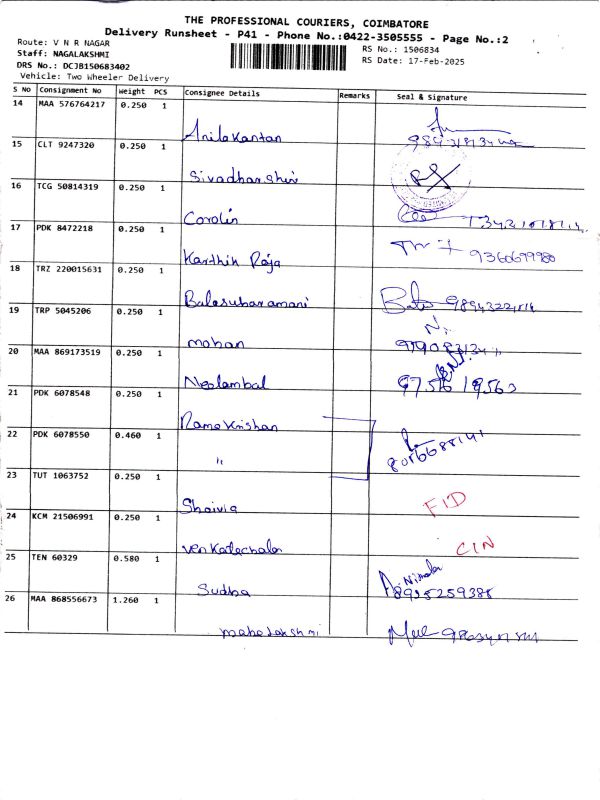 THE PROFESSIONAL COURIERS, COIMBATORE
Delivery Runsheet - P41 - Phone No.:0422-3505555 - Page No.:2
Route: V N R NAGAR
Staff: NAGALAKSHMI
DRS No.: DCJB150683402
Vehicle: Two Wheeler Delivery
RS No.: 1506834
RS Date: 17-Feb-2025
S No Consignment No Weight PCS Consignee Details Remarks Seal & Signature
14 MAA 576764217 0.250 1
Anilakantan
15 CLT 9247320 0.250 1
Sivadharshini
16 TCG 50814319 0.250 1
Carolin
17 PDK 8472218 0.250 1
Karthik Raja 9360699980
18 TRZ 220015631 0.250 1
Balasubaramani
19 TRP 5045206 0.250 1
mohan
20 MAA 869173519 0.250 1
Neelambal
21 PDK 6078548 0.250 1
Ramakrishan
22 PDK 6078550 0.460 1
"
23 TUT 1063752 0.250 1
Shaivia FID
24 KCM 21506991 0.250 1
Venkatachalan CIN
25 TEN 60329 0.580 1
Sudha
26 MAA 868556673 1.260 1
mahalakshmi